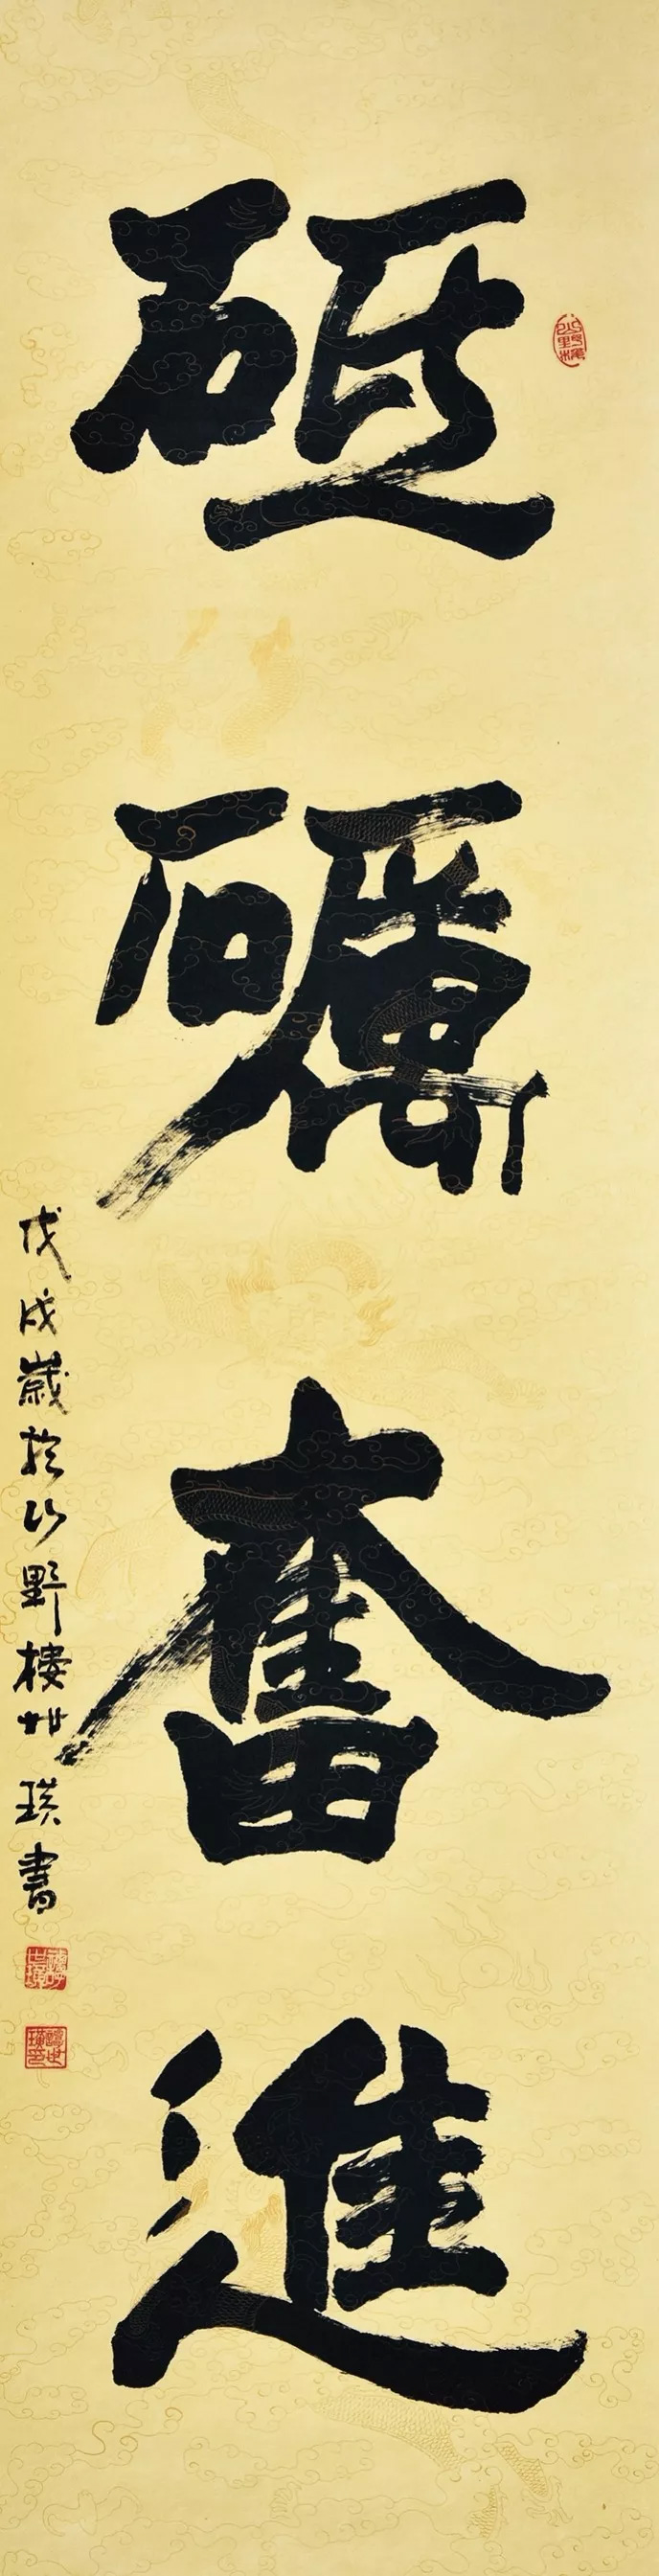 砥礪奮進
戊戌歲於山野樓世瑛書